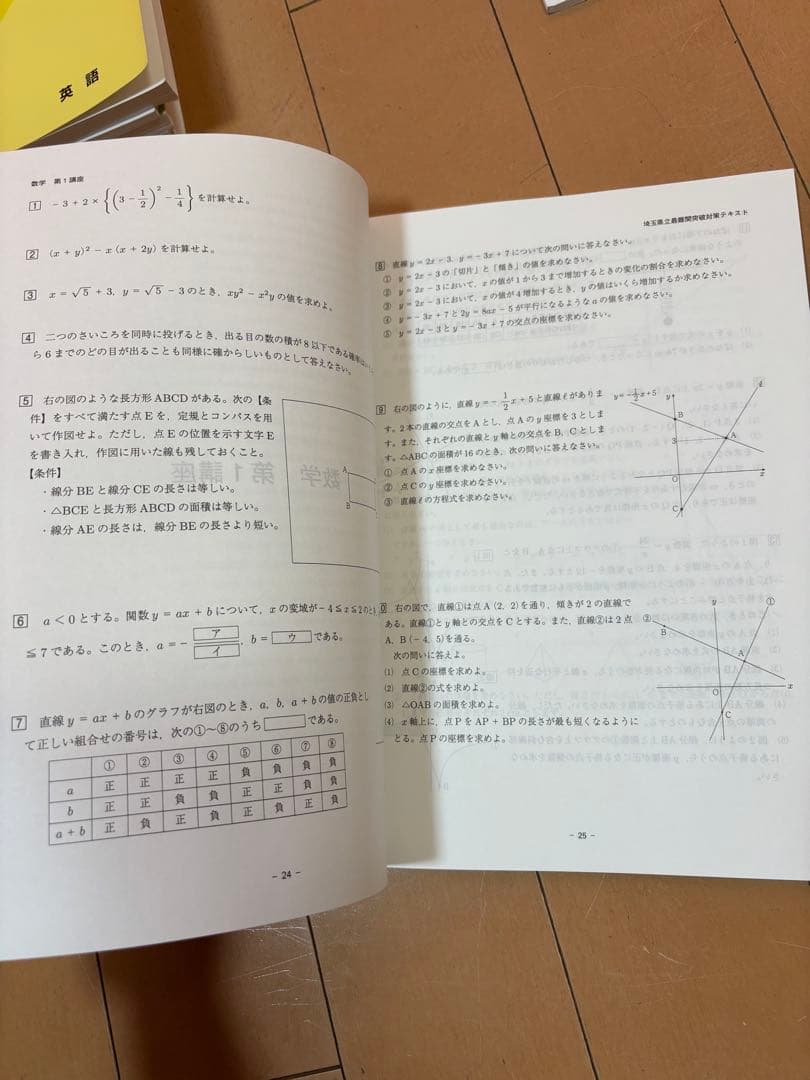 英語
数学 第1講座
1 −3+2×{(3−1/2)²−1/4} を計算せよ。
2 (x+y)²−x(x+2y) を計算せよ。
3 x=√5+3, y=√5−3のとき, xy²−x²yの値を求めよ。
4 二つのさいころを同時に投げるとき, 出る目の数の積が8以下である確率
ら6までのどの目が出ることも同様に確からしいものとして答えなさい。
5 右の図のような長方形ABCDがある。次の【条
件】をすべて満たす点Eを, 定規とコンパスを用
いて作図せよ。ただし, 点Eの位置を示す文字E
を書き入れ, 作図に用いた線も残しておくこと。
【条件】
・線分BEと線分CEの長さは等しい。
・△BCEと長方形ABCDの面積は等しい。
・線分AEの長さは, 線分BEの長さより短い。
A
B
6 a<0とする。関数y=ax+bについて, xの変域が−4≦x≦2のとき
≦7である。このとき, a=−ア/イ, b=ウである。
7 直線y=ax+bのグラフが右図のとき, a, b, a+bの値の正負とし
て正しい組合せの番号は, 次の①〜⑧のうち である。
① ② ③ ④ ⑤ ⑥ ⑦ ⑧
a 正 正 正 正 負 負 負 負
b 正 正 負 負 正 正 負 負
a+b 正 負 正 負 正 負 正 負
− 24 −
埼玉県立最難関突破対策テキスト
8 直線y=2x−3, y=−3x+7について次の問いに答えなさい。
① y=2x−3の「切片」と「傾き」の値を求めなさい。
② y=2x−3において, xの値が1から3まで増加するときの変化の割合を求めなさい。
③ y=2x−3において, xの値が4増加するとき, yの値はいくら増加するか求めなさい。
④ y=−3x+7と2y=8ax−5が平行になるようなaの値を求めなさい。
⑤ y=2x−3とy=−3x+7の交点の座標を求めなさい。
9 右の図のように, 直線y=−1/2x+5と直線ℓがありま
す。2本の直線の交点をAとし, 点Aのy座標を3としま
す。また, それぞれの直線とy軸との交点をB, Cとしま
す。△ABCの面積が16のとき, 次の問いに答えなさい。
① 点Aのx座標を求めなさい。
② 点Cのy座標を求めなさい。
③ 直線ℓの方程式を求めなさい。
y=−1/2x+5
y
ℓ
B
3
A
O
x
C
0 右の図で, 直線①は点A(2, 2)を通り, 傾きが2の直線で
ある。直線①とy軸との交点をCとする。また, 直線②は2点
A, B(−4, 5)を通る。
次の問いに答えよ。
(1) 点Cの座標を求めよ。
(2) 直線②の式を求めよ。
(3) △OABの面積を求めよ。
(4) x軸上に, 点PをAP+BPの長さが最も短くなるように
とる。点Pの座標を求めよ。
y
①
②
B
A
O
x
C
− 25 −